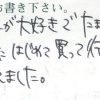 お書き下さい。
が大好きでたま
はじめて買って行
ました。